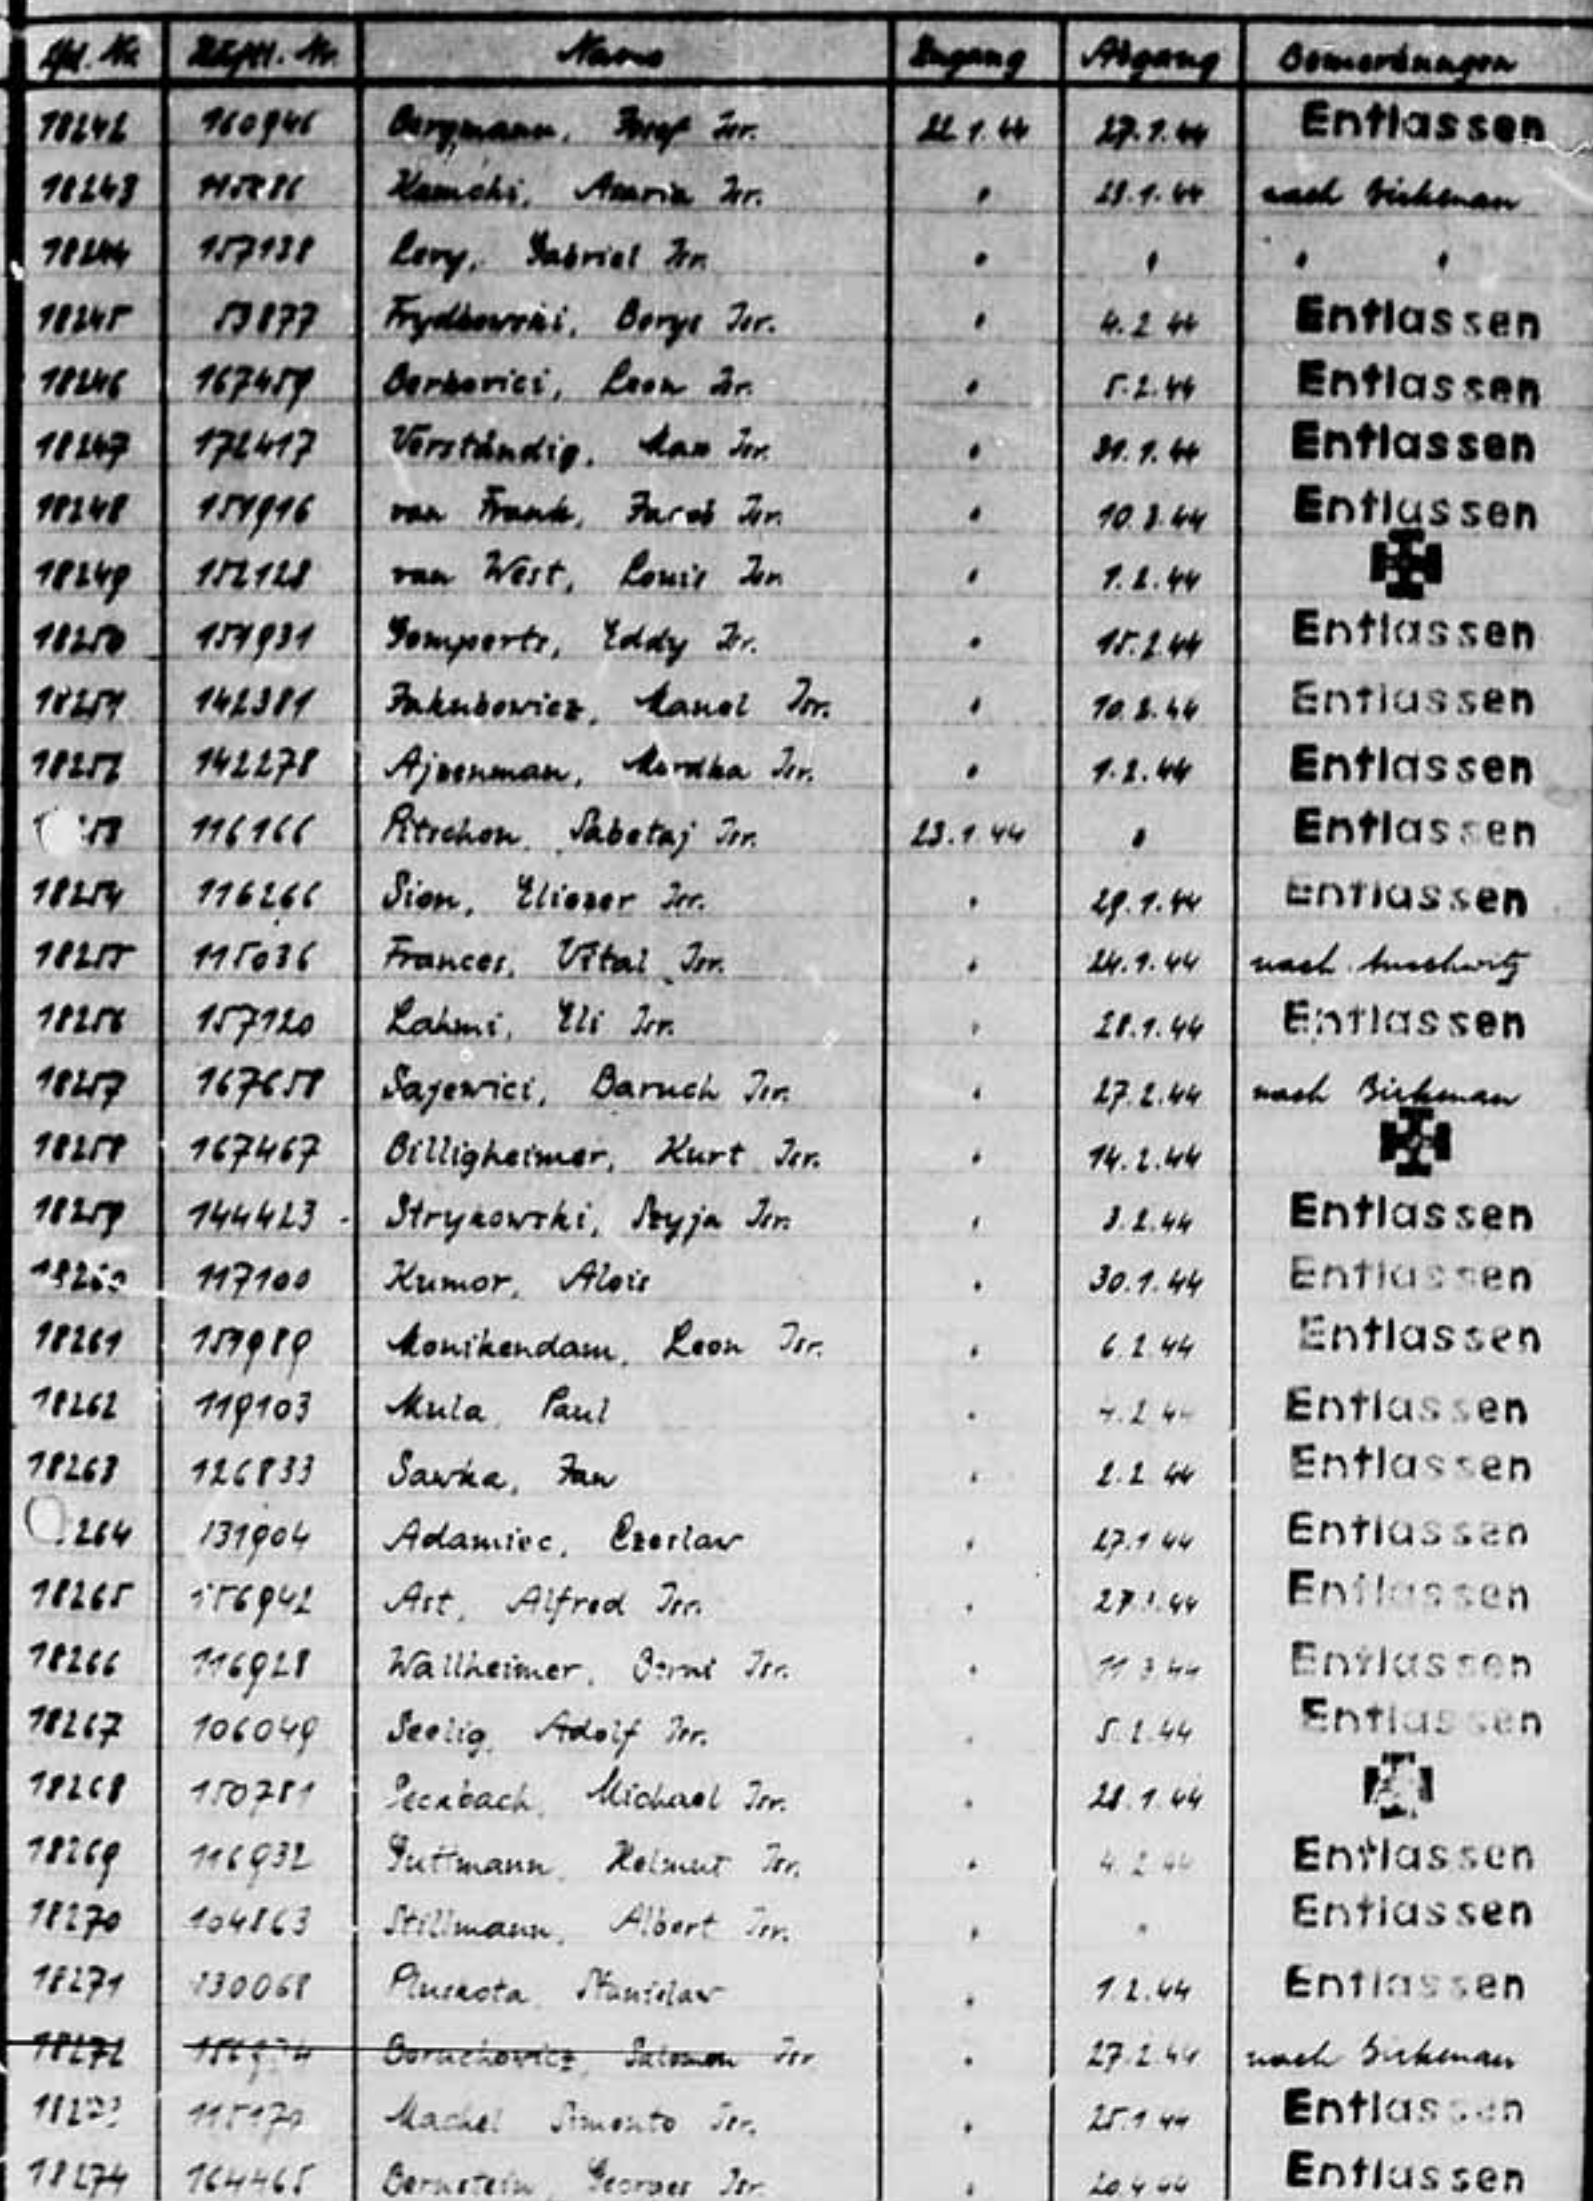 Lfd. Nr. Häftl. Nr. Name Zugang Abgang Bemerkungen
18242 160946 Bergmann, Josef Isr. 22.1.44 27.1.44 Entlassen
18243 Isr. " 29.1.44 nach Birkenau
18244 157138 Levy, Gabriel Isr. " " " "
18245 Borys Isr. " 4.2.44 Entlassen
18246 167459 Berkovici, Leon Isr. " 5.2.44 Entlassen
18247 172417 Verständig, Max Isr. " 31.1.44 Entlassen
18248 151916 van Frank, Jacob Isr. " Entlassen
18249 152128 van West, Louis Isr. " 1.2.44
18250 151931 Gomperts, Eddy Isr. " 15.2.44 Entlassen
18251 142381 Jakubowicz, Manel Isr. " 10.2.44 Entlassen
18252 142278 Ajzenman, Mordka Isr. " 1.2.44 Entlassen
116166 Pitschon, Sabetaj Isr. 23.1.44 " Entlassen
18254 116266 Sion, Eliezer Isr. " 29.1.44 Entlassen
18255 115036 Frances, Vital Isr. " 24.1.44 nach Auschwitz
18256 157120 Lahmi, Eli Isr. " 28.1.44 Entlassen
18257 167658 Sajewici, Baruch Isr. " 27.2.44 nach Birkenau
18258 167467 Billigheimer, Kurt Isr. " 14.2.44
18259 144423 Strykowski, Szyja Isr. " 3.2.44 Entlassen
18260 117100 Kumor, Alois " 30.1.44 Entlassen
18261 151989 Monikendam, Leon Isr. " 6.2.44 Entlassen
18262 119103 Mula, Paul " 4.2.44 Entlassen
18263 126833 Sawka, Jan " 2.2.44 Entlassen
264 131904 Adamiec, Czeslaw " 27.1.44 Entlassen
18265 156942 Ast, Alfred Isr. " 27.1.44 Entlassen
18266 116928 Wallheimer, Isr. " 11.3.44 Entlassen
18267 106049 Seelig, Adolf Isr. " 5.2.44 Entlassen
18268 150781 Michael Isr. " 28.1.44
18269 116932 Guttmann, Helmut Isr. " 4.2.44 Entlassen
18270 104863 Stillmann, Albert Isr. " " Entlassen
18271 130068 Pluskota, Stanislaw " 1.2.44 Entlassen
18272 Boruchowicz, Salomon Isr. " 27.2.44 nach Birkenau
18273 Isr. " 25.1.44 Entlassen
18274 164465 Bernstein, Georges Isr. " Entlassen